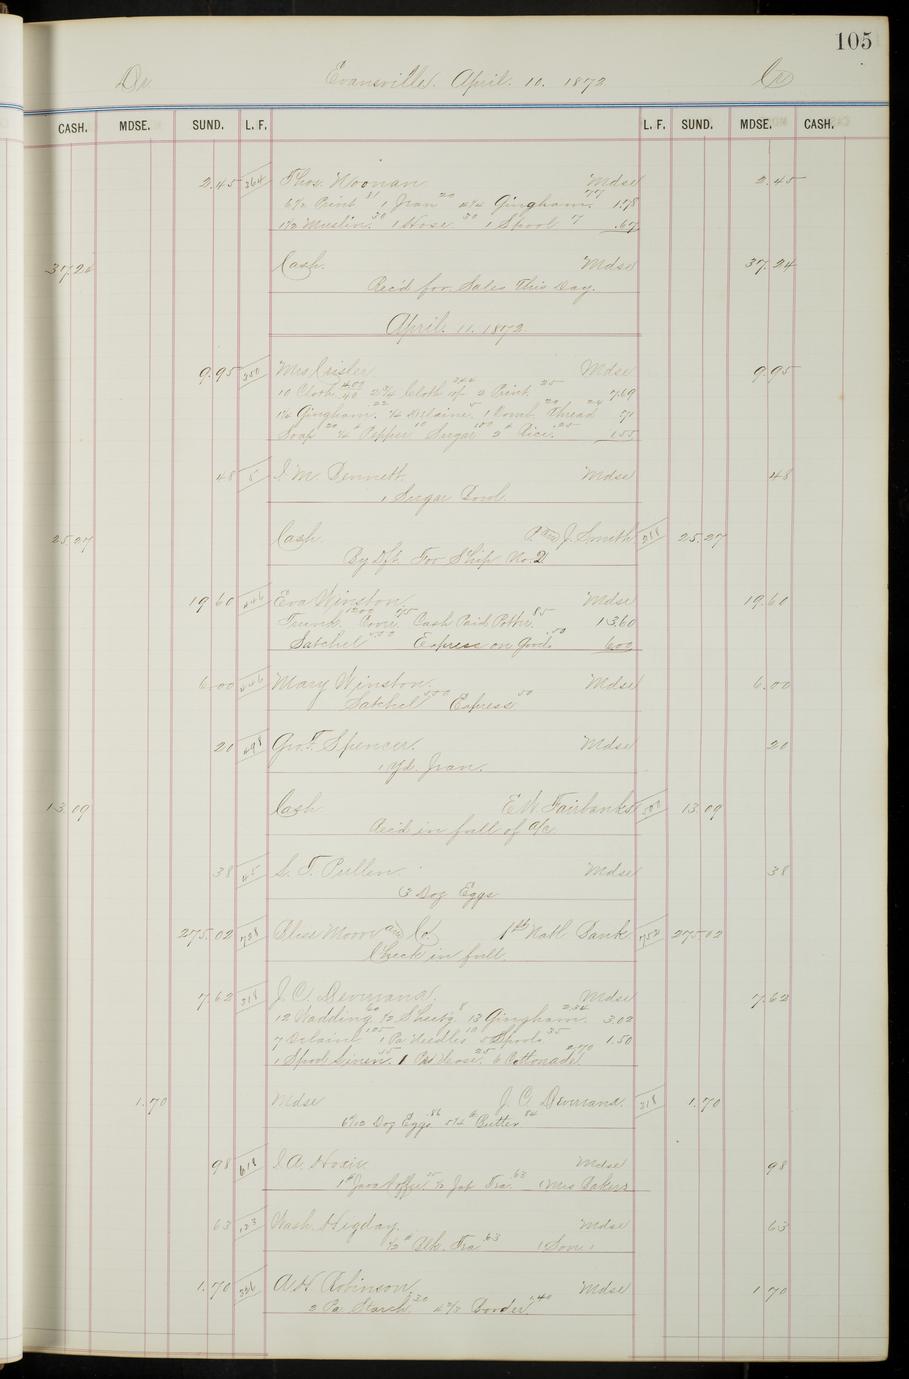 105
Dr. Evansville. April. 10. 1872 Cr
CASH. MDSE. SUND. L. F. L. F. SUND. MDSE. CASH.
2.45 364 Thos. Noonan Mdse 2.45
6½ Print 81 1 Jean 20 Gingham. 77 1.78
1½ Muslin. 30 1 Hose. 30 1 Spool 7 .67
37.24 Cash. Mdse 37.24
Rec'd for Sales This Day.
April. 11. 1872
9.95 250 Mrs Crisler Mdse 9.95
10 Cloth. Cloth 2 Print. 25 7.69
1¼ Gingham. 22 Delaine. 1 Comb. 20 Thread 24 71
Soap 20 ¼# Pepper 10 Sugar 100 2# Rice. 25 1.55
48 5 I. M. Bennett. Mdse 48
1 Sugar Bowl.
25.27 Cash. and J. Smith 211 25.27
By Dft. For Ship No. 2
19.60 446 Eva Winston Mdse 19.60
Trunk. 1200 Cover. 75 Cash Paid Potter. 85 13.60
Satchel 550 Express on Goods .50 6.00
6.00 446 Mary Winston. Mdse 6.00
Satchel 550 Express 50
20 498 Geo. T. Spencer. Mdse 20
1 yd. Jean.
13.09 Cash E W Fairbanks 507 13.09
Rec'd in full of a/c
38 45 S. T. Pullen Mdse 38
3 Doz Eggs
275.02 728 Bliss Moore and Co 1st Natl Bank 752 275.02
Check in full.
7.62 218 J. C. Devinand. Mdse 7.62
12 Wadding. 60 ½ Sheetg 8 13 Gingham. 234 3.02
7 Delaine 105 1 Pa Needles 10 5 Spools 35 1.50
1 Spool Linen. 15 1 Pr Hose. 25 6 Cottonade. 270
1.70 Mdse J. C. Devinand. 218 1.70
Doz Eggs .86 # Butter 84
98 618 I. A. Hoxie Mdse 98
1# Java Coffee 35 ½ Jap Tea. 63 (Mrs Baker)
63 123 Wash. Higday. Mdse 63
½# Blk. Tea .63 (Son)
1.70 326 A. H. Robinson. Mdse 1.70
2 Pa Starch .30 Border. 1.40